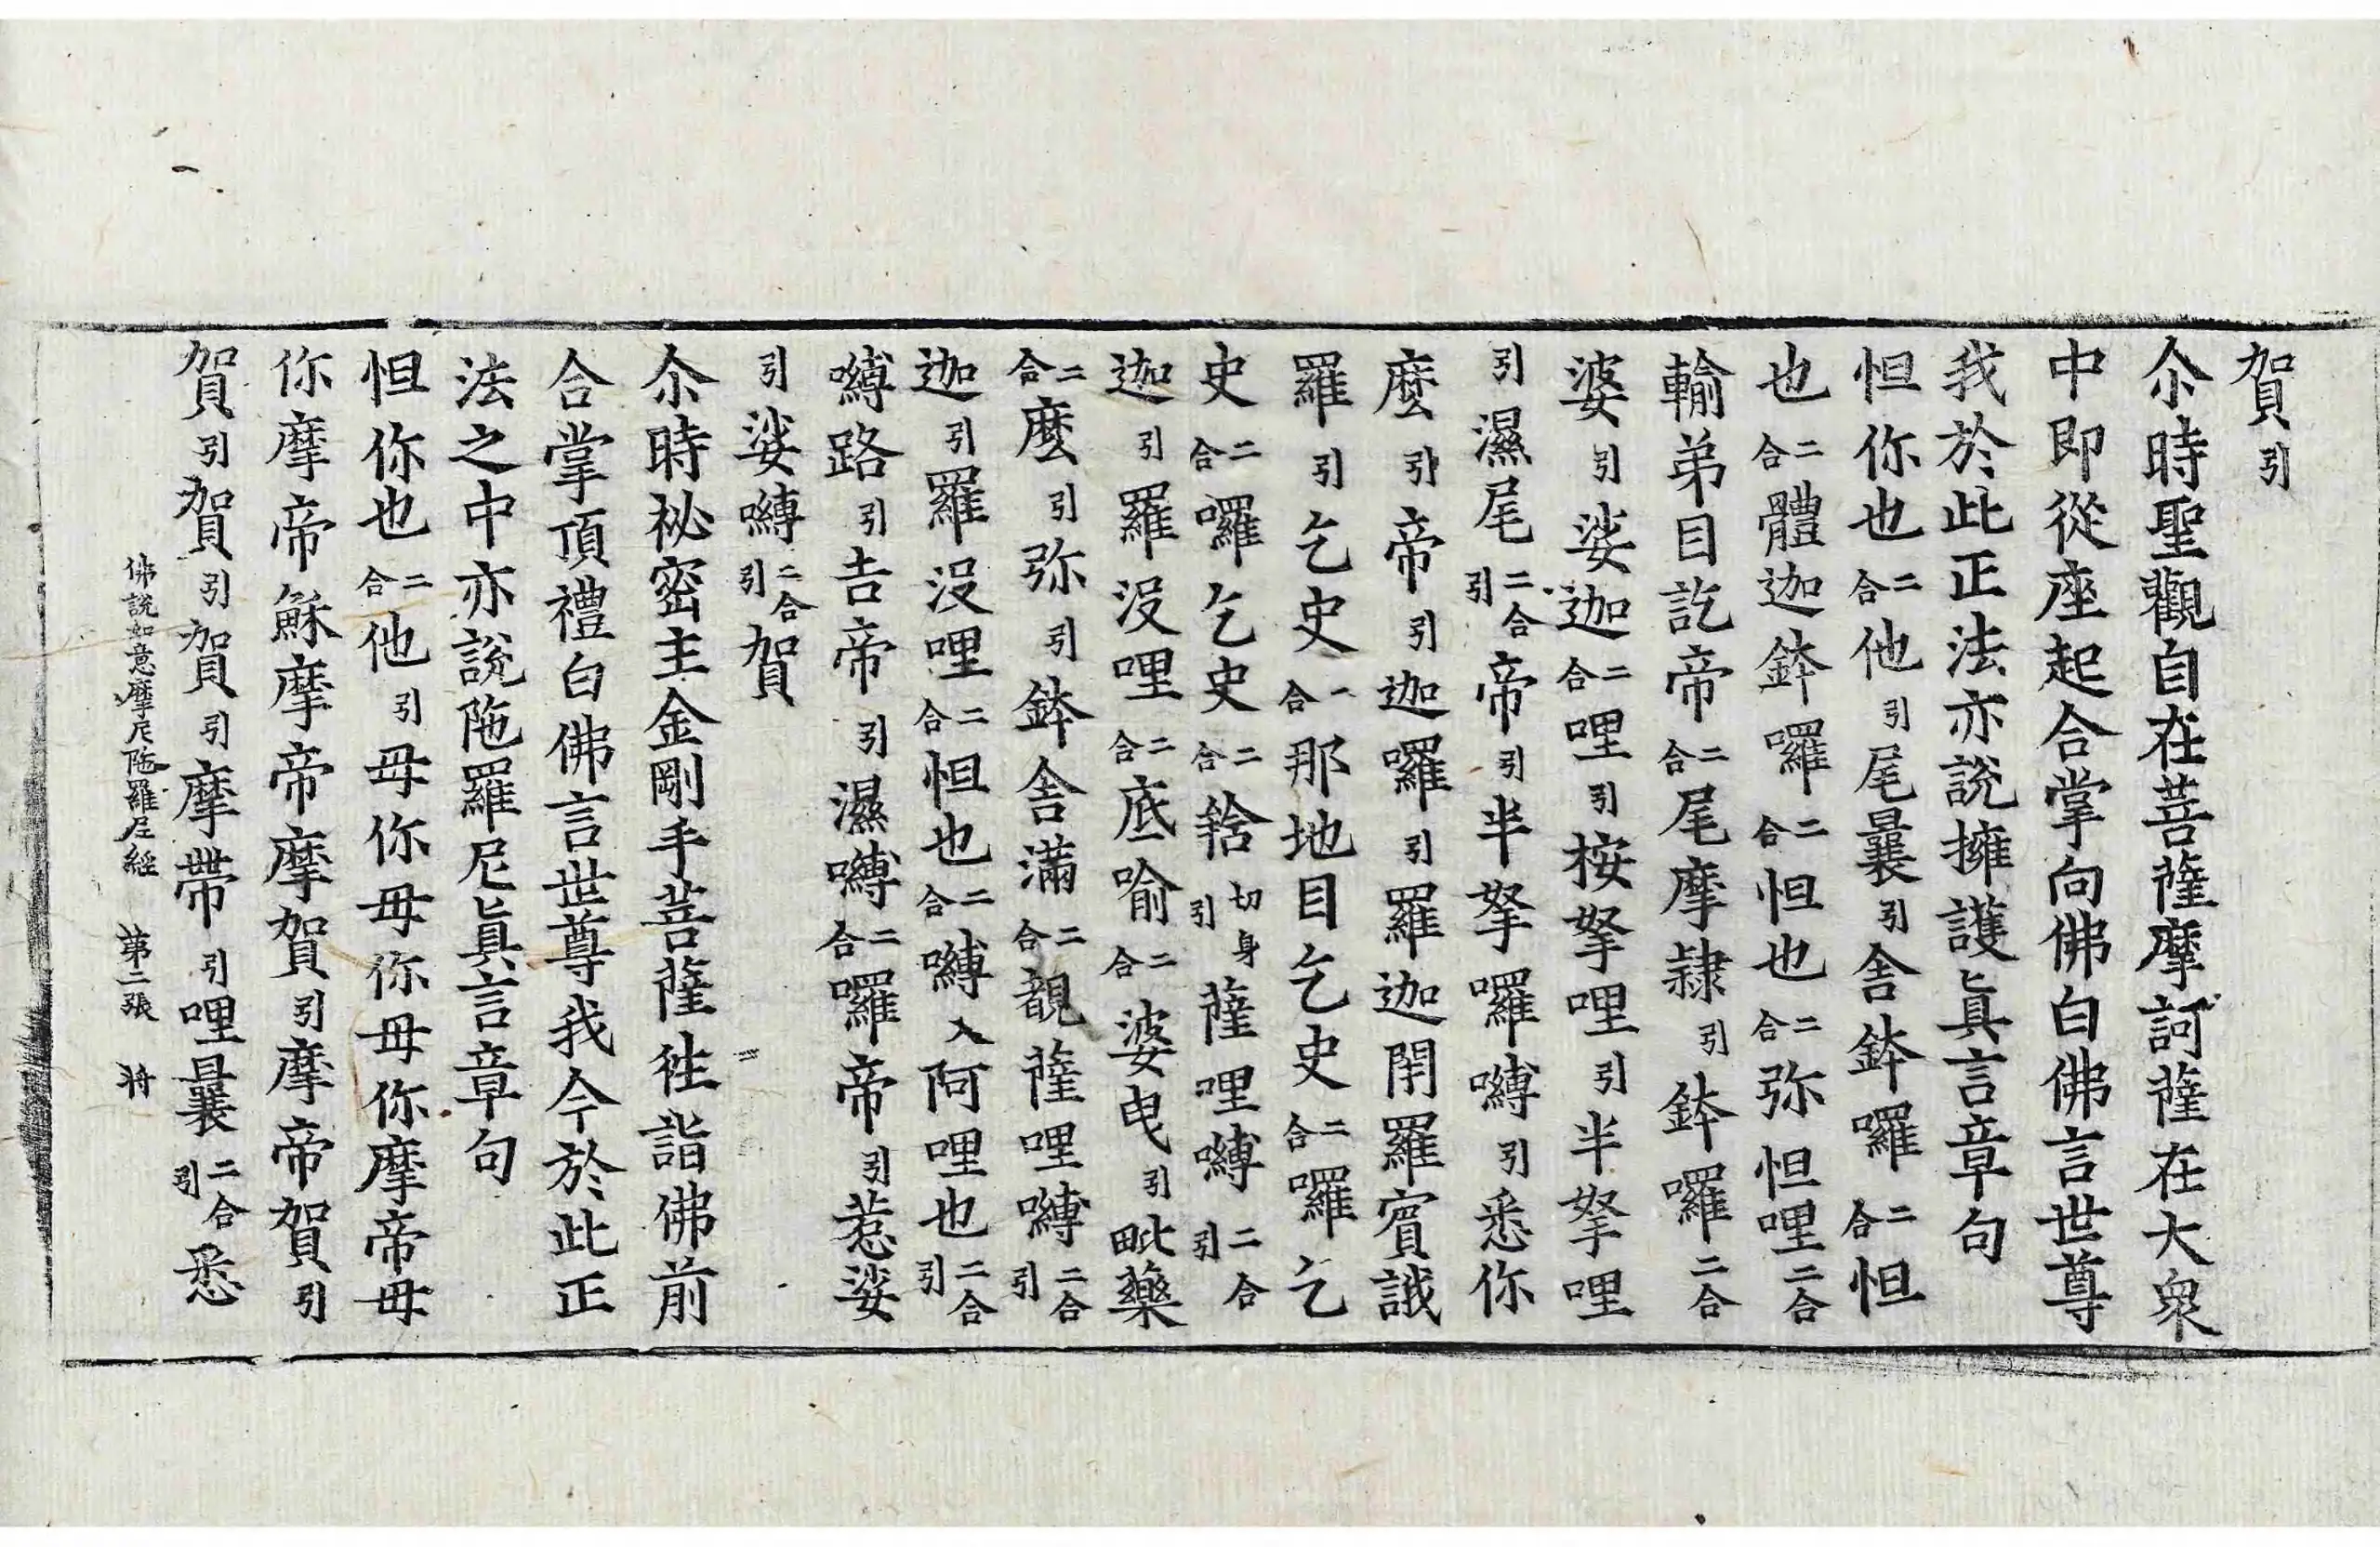 賀引
尒時聖觀自在菩薩摩訶薩在大衆
中即從座起合掌向佛白佛言世尊
我於此正法亦說擁護眞言章句
怛你也二合他引尾曩引舍鉢囉二合怛
也二合體迦鉢囉二合怛也二合弥怛哩二合
輸弟目訖帝二合尾摩隷引鉢囉二合
婆引娑迦二合哩引桉拏哩引半拏哩
引濕尾二合引帝引半拏囉嚩引悉你
麼引帝引迦囉引羅迦閇羅賓誐
羅引乞史一合那地目乞史二合囉乞
史二合囉乞史二合捨切身引薩哩嚩二合引
迦引羅沒哩二合底喻二合婆曳引毗藥
二合麼引弥引鉢舍滿二合覩薩哩嚩二合引
迦引羅沒哩二合怛也二合嚩入阿哩也二合引
嚩路引吉帝引濕嚩二合囉帝引惹娑
引娑嚩二合引賀
尒時祕密主金剛手菩薩徃詣佛前
合掌頂禮白佛言世尊我今於此正
法之中亦說陁羅尼眞言章句
怛你也二合他引毋你毋你毋你摩帝毋
你摩帝穌摩帝摩賀引摩帝賀引
賀引賀引賀引摩帶引哩曩二合引悉
佛說如意摩尼陁羅尼經 第二張 將